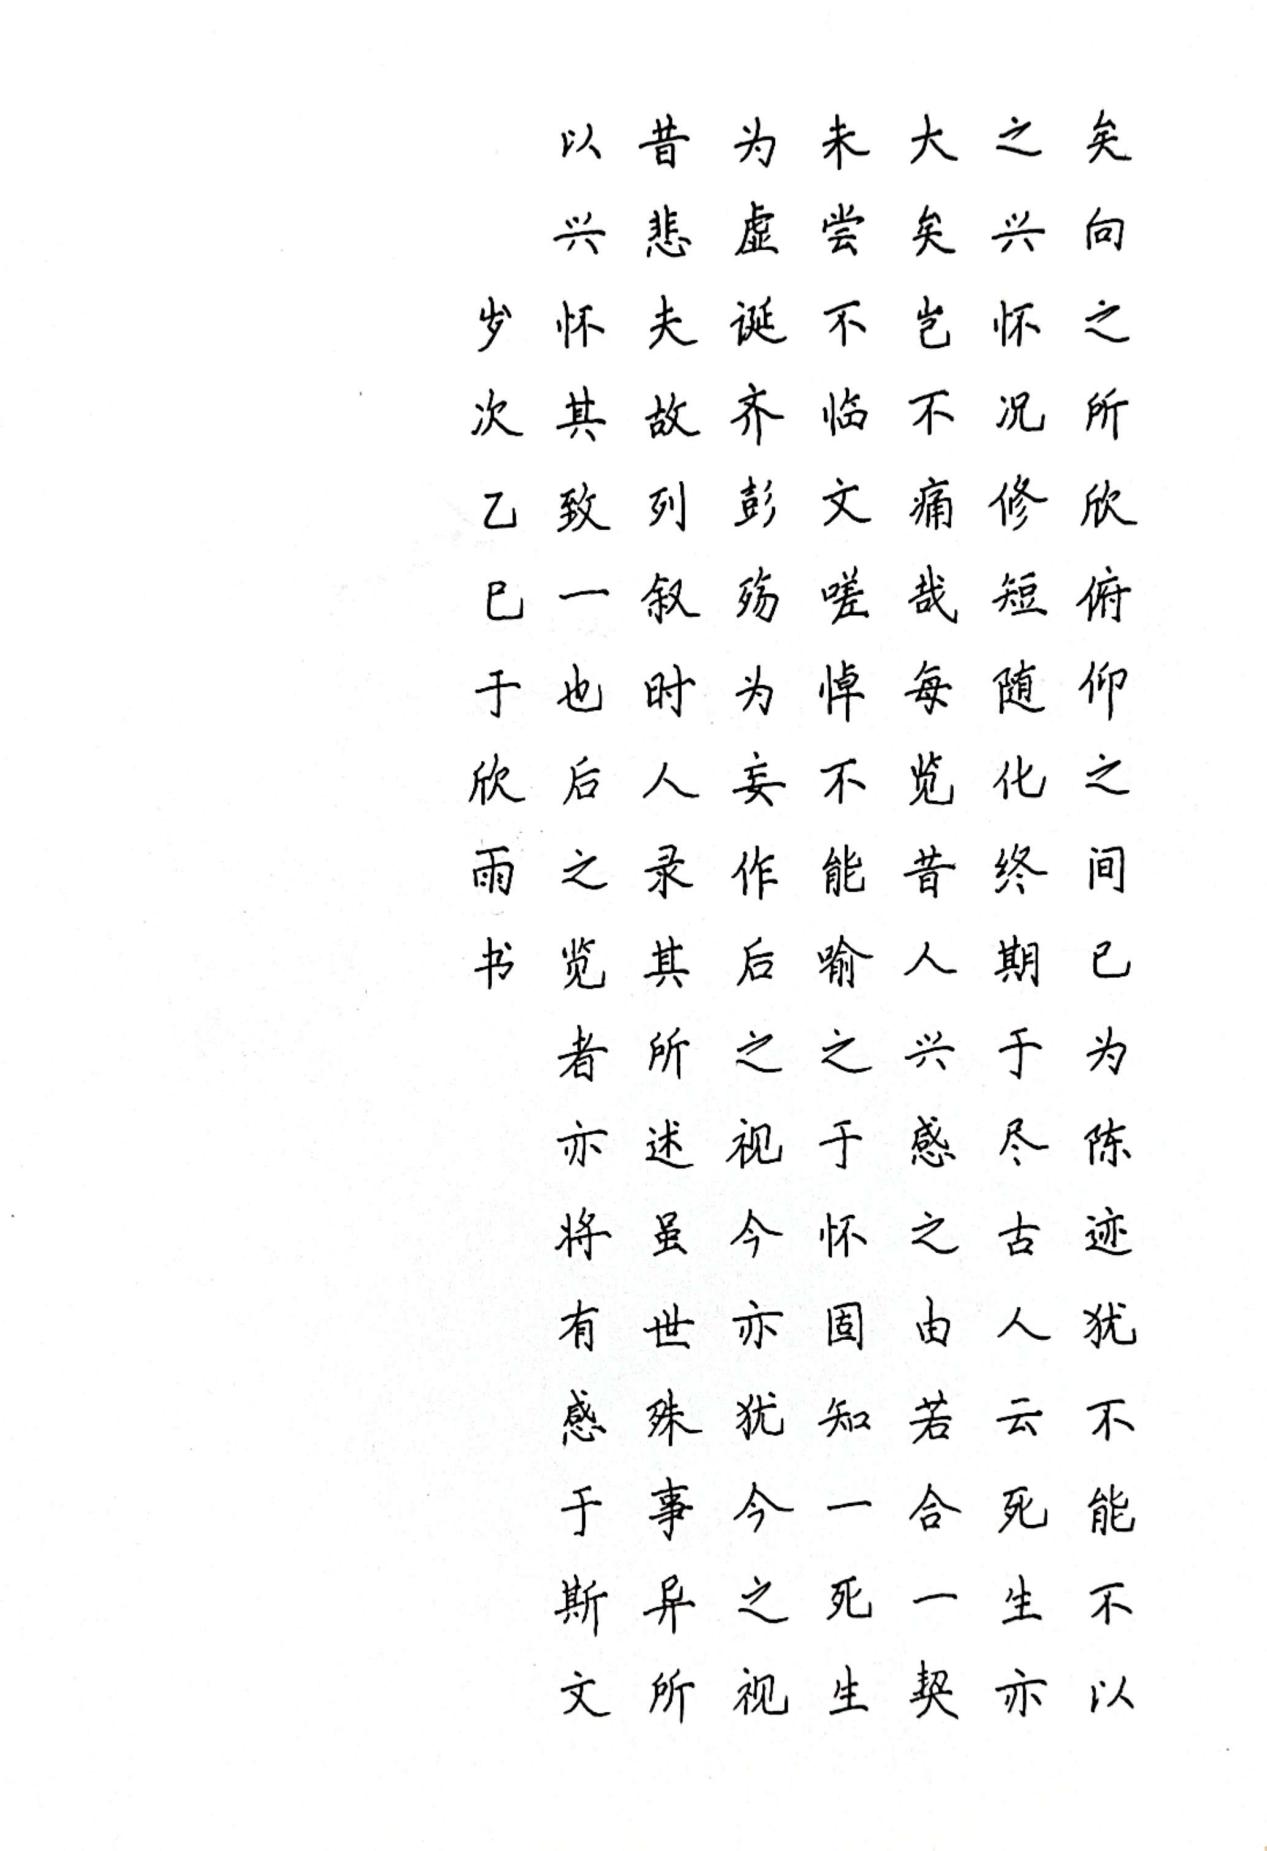 矣向之所欣俯仰之间已为陈迹犹不能不以
之兴怀况修短随化终期于尽古人云死生亦
大矣岂不痛哉每览昔人兴感之由若合一契
未尝不临文嗟悼不能喻之于怀固知一死生
为虚诞齐彭殇为妄作后之视今亦犹今之视
昔悲夫故列叙时人录其所述虽世殊事异所
以兴怀其致一也后之览者亦将有感于斯文
岁次乙巳于欣雨书